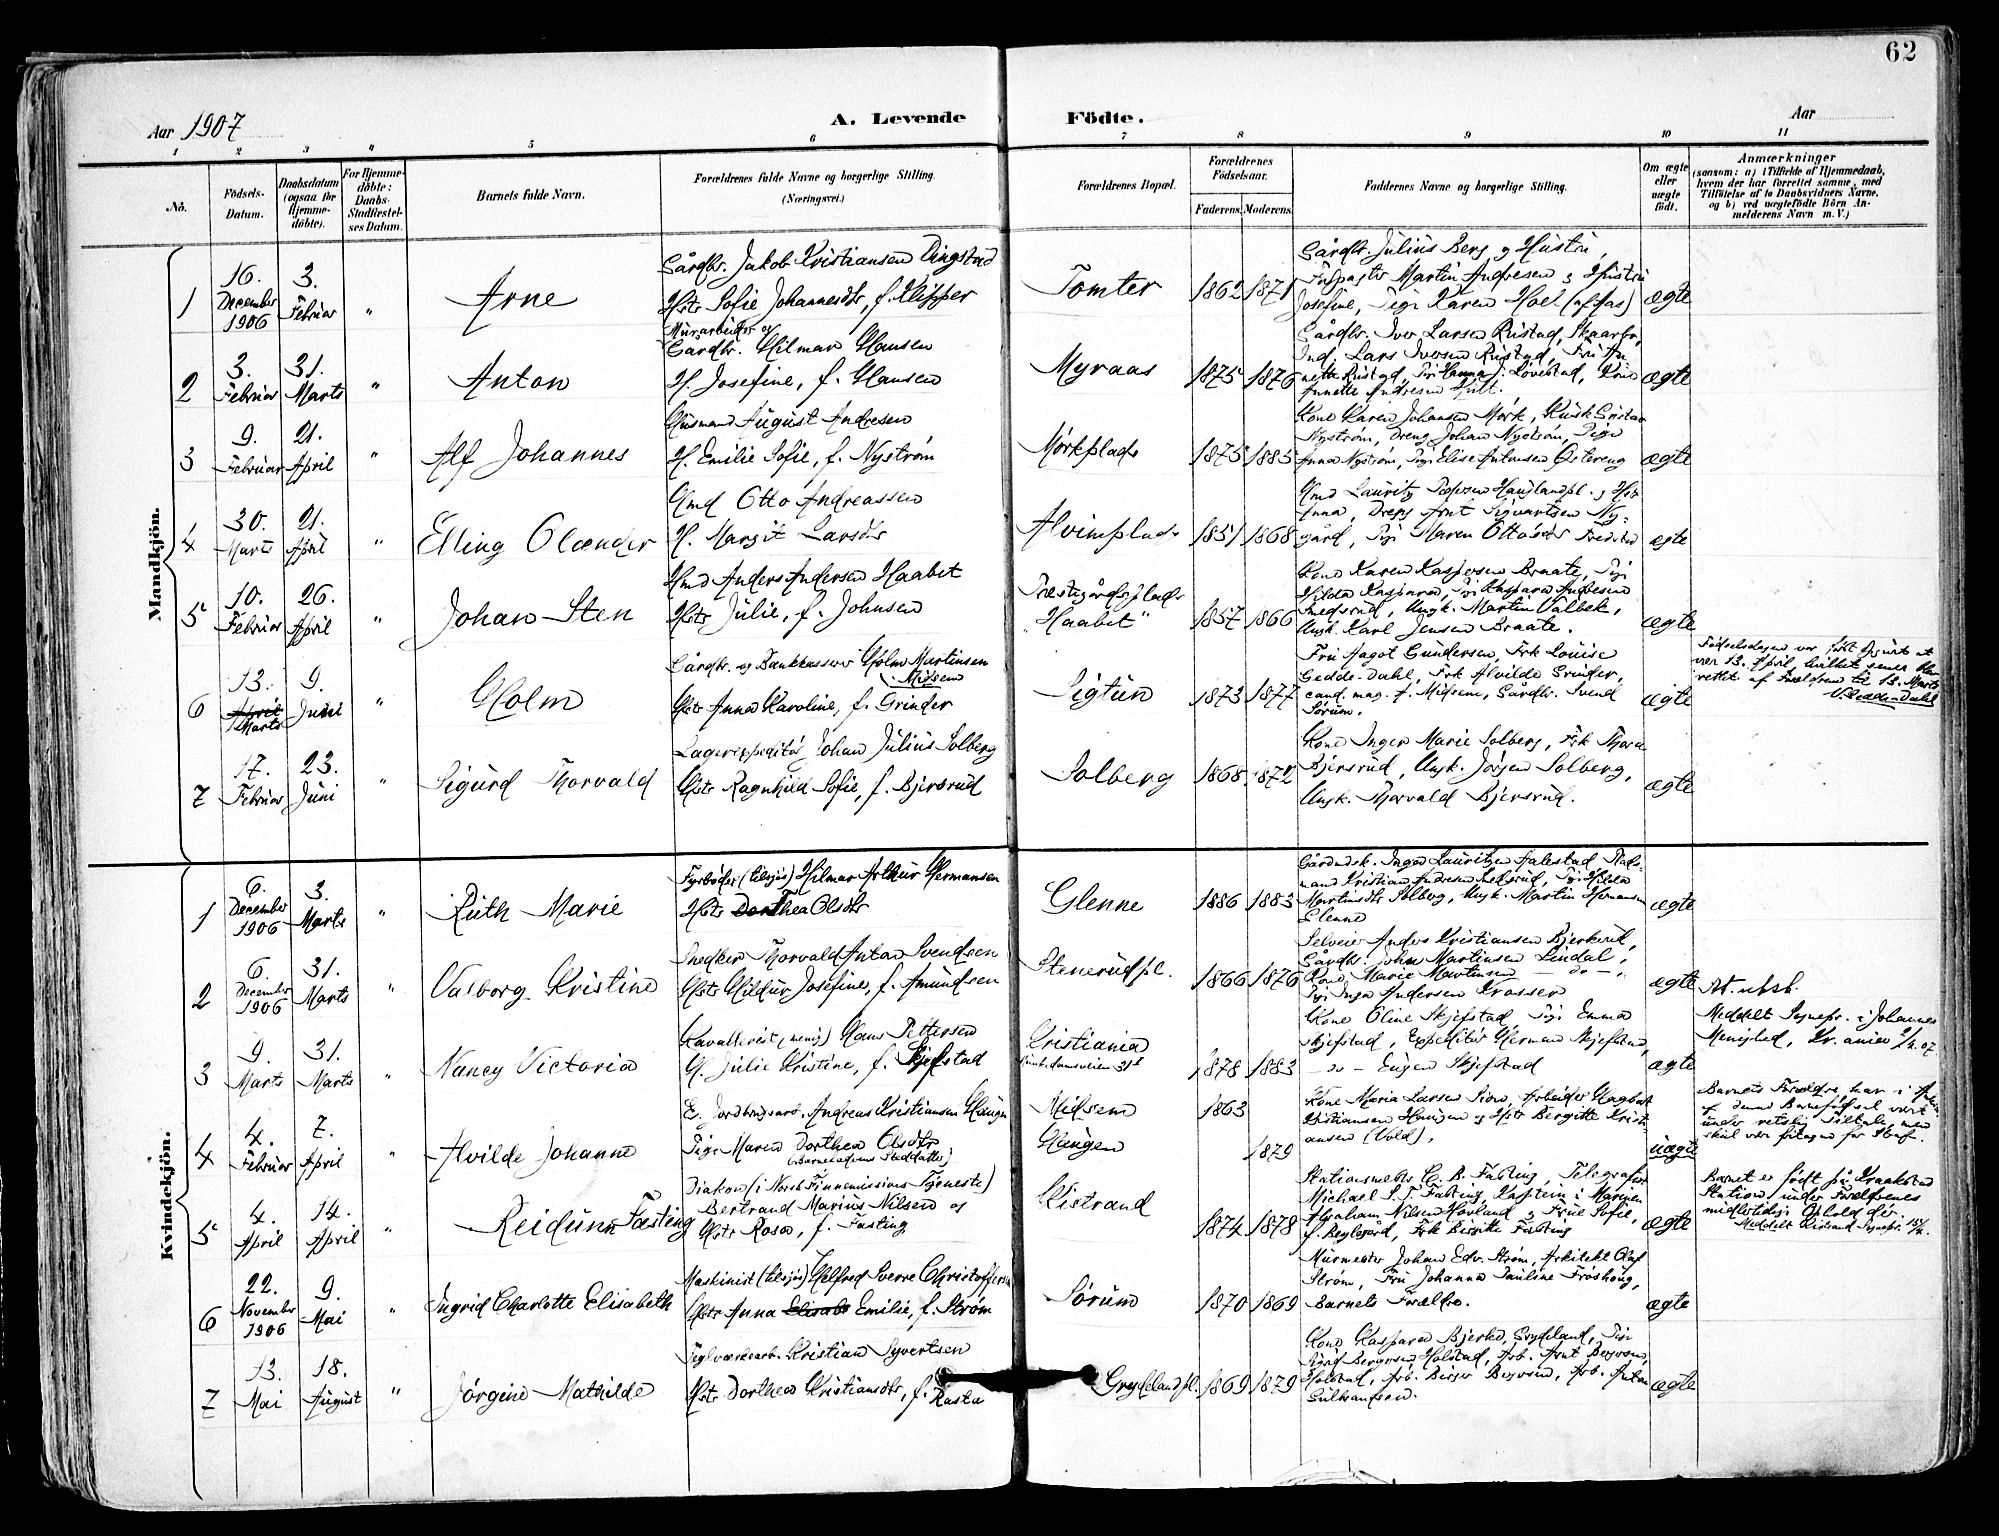 62
Aar 1907
A. Levende Födte.
Aar
1 2 3 4 5 6 7 8 9 10 11
No.
Födsels-Datum.
Daabsdatum (ogsaa för Hjemme-döbte).
For Hjemme-döbte: Daabs-Stadfæstel-ses Datum.
Barnets fulde Navn.
Forældrenes fulde Navne og borgerlige Stilling. (Næringsvei.)
Forældrenes Bopæl.
Forældrenes Födselsaar.
Faderens. Moderens.
Faddernes Navne og borgerlige Stilling.
Om ægte eller uægte födt.
Anmærkninger
(saasom: a) i Tilfælde af Hjemmedaab, hvem der har forrettet samme, med Tilföielse af to Daabsvidners Navne, og b) ved uægtefödte Börn An-melderens Navn m. V.)
Mandkjön.
1 16. December 1906 3. Februar " Arne
Gårdbr. Jakob Kristiansen Dingstad
Hstr Sofie Johannesdtr, f. Klipper
Tomter 1862 1871
Gårdbr. Julius Berg og Hustru,
Martin Andresen og Hustru
Josefine, Pige Karen Hoel
ægte
2 3. Februar 31. Marts " Anton
Murarbeider og
Gårdbr. Hilmar Hansen
H. Josefine, f. Hansen
Myraas 1875 1876
Gårdbr. Iver Larsen Rustad, Skaarbo,
Ind. Lars Iversen Rustad, Fru An-
nette Rustad, Pige Hanna J. Løvestad, Kone
Annette Andresen
ægte
3 9. Februar 21. April " Alf Johannes
Husmand August Andresen
H. Emilie Sofie, f. Nystrøm
Mørkplads 1875 1885
Kone Karen Johansen Mørk, Kusk Gustav
Nystrøm, Dreng Johan Nystrøm, Pige
Anna Nystrøm, Pige Elise Antonsen Østereng
ægte
4 30. Marts 21. April " Elling Olaender
Hmd Otto Andreassen
H. Margit Larsdtr
Alvimplads 1851 1868
Hmd Lauritz Pedersen Hauglandpl. og Hstr
Anna, Dreng Arnt Sigvartsen Ny-
gård, Pige Maren Ottosdtr
ægte
5 10. Februar 26. April " Johan Sten
Hmd Anders Andersen Haabet
Hstr Julie, f. Johnsen
Præstegårdsplads
"Haabet" 1857 1866
Kone Karen Kaspersen Braate, Pige
Hilda Kaspara, Pige Kaspara Andresen
Ungk. Martin Valbek,
Ungk. Karl Jensen Braate.
ægte
6 13. April Marts 9. Juni " Holm
Gårdbr. og Bankkasserer Holm Martinsen
Midsem
Hstr Anna Karoline, f. Grinder
Sigtun 1873 1877
Fru Aagot Gundersen, Frk Louise
Gedde-Dahl, Frk Alvilde Grinder,
cand. mag. f. Midsem, Gårdbr. Svend
Sørum.
ægte
Fødselsdagen var først opgivet at
være 13. April, hvilket senere blev
rettet af Forældrene til 13. Marts
7 17. Februar 23. Juni " Sigurd Thorvald
Lagerexpeditør Johan Julius Solberg
Hstr Ragnhild Sofie, f. Bjersrud
Solberg 1868. 1872
Kone Inger Marie Solberg, Frk Thora
Bjersrud, Ungk. Jørgen Solberg,
Ungk. Thorvald Bjersrud.
ægte
Kvindekjön.
1 6. December 1906 3. Marts " Ruth Marie
Fyrbøder (tilsjøs) Hilmar Arthur Hermansen
Hstr Dorthea Olsdtr
Glenne 1886 1883
Gårdmdsk. Inga Lauritzen Aalestad, Plads-
mand Kristian Andresen Pige Hilda
Martinsdtr Solberg, Ungk. Martin Hermansen
Glenne
ægte
2 6. December 1906 31. Marts " Valborg Kristine
Snedker Thorvald Anton Svendsen
Hstr Hildur Josefine, f. Amundsen
Stenerudpl. 1866 1876
Selveier Anders Kristiansen Bjerkerud,
Gårdbr. John Martinsen Lindal,
Kone Marie Martinsen — do —,
Pige Inga Andersen Krosser
ægte
3 9. Marts 31. Marts " Nancy Victoria
Kavallerist (menig) Hans Pettersen
H. Julie Kristine, f. Skjefstad
Kristiania
1878 1883
Kone Oline Skjefstad, Pige Emma
Skjefstad, Expeditør Herman Skjefstad,
— do — Eugen Skjefstad
ægte
Meddelt Sognepr. i Johannes
Menighed, Kr.ania
4 4. Februar 7. April Alvilde Johanne
E. Jordbrugsarb. Andreas Kristiansen Haugen
Pige Maren Dorthea Olsdtr
Midsem 1863
Haugen 1879
Kone Maria Larsen Lien, Arbeider Hagbart
Kristiansen Haugen og Hstr Bergitte Kristi-
ansen (Vold),
uægte
Barnets Forældre har i
af denne Barnefødsel været
under retslig Tiltale, men
5 4. April 14. April " Reidunn Fasting
Diakon (i Norsk Finnemissions Tjeneste)
Bertrand Marius Nilsen og
Hstr Rosa, f. Fasting
Kistrand 1874 1878
Stationsmester C. B. Fasting, Telegrafist
Michael S. T. Fasting, Kaptein i Marinen
Abraham Nilsen Hovland og Frue Sofie,
Frk Birgitte Fasting
ægte
Barnet er født på Kraakstad
Station under Forældrenes
midlertidige Ophold der.
Meddelt Kistrand Sognepr. 15/4
6 22. November 1906 9. Mai " Ingrid Charlotte Elisabeth
Maskinist (tilsjøs) Helfred Sverre Christoffersen
Hstr Anna Elisabe Emilie, f. Strøm
Sørum 1870 1869
Murmester Johan Edv. Strøm, Arkitekt Olaf
Strøm, Fru Johanna Pauline Frøshoug,
Barnets Forældre.
ægte
7 13. Mai 18. August " Jørgine Mathilde
Teglværksarb. Kristian Syvertsen
Hstr Dorthea Kristiansdtr, f. Rasta
Grydelandpl. 1869 1879
Kone Kaspara Bjerke, Grydeland, Pige
Sigrid Bergersen Holstad, Arb. Arnt Bergersen,
Holstad, Arb. Birger Bergersen, Arb. Anton
Gulbrandsen.
ægte